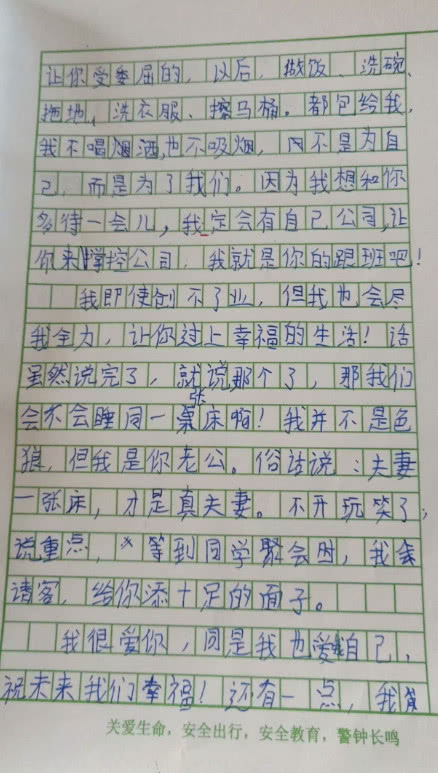 让你受委屈的，以后，做饭、洗碗、
拖地，洗衣服、擦马桶。都包给我，
我不喝烟酒，也不吸烟，因不是为自
己，而是为了我们。因为我想和你
多待一会儿，我定会有自己公司，让
你来掌控公司，我就是你的跟班吧！
我即使创不了业，但我也会尽
我全力，让你过上幸福的生活！话
虽然说完了，就说那个了，那我们
会不会睡同一张床啊！我并不是色
狼，但我是你老公。俗话说：夫妻
一张床，才是真夫妻。不开玩笑了，
说重点，等到同学聚会时，我会
请客，给你添十足的面子。
我很爱你，同是我也爱自己，
祝未来我们幸福！还有一点，我
关爱生命，安全出行，安全教育，警钟长鸣